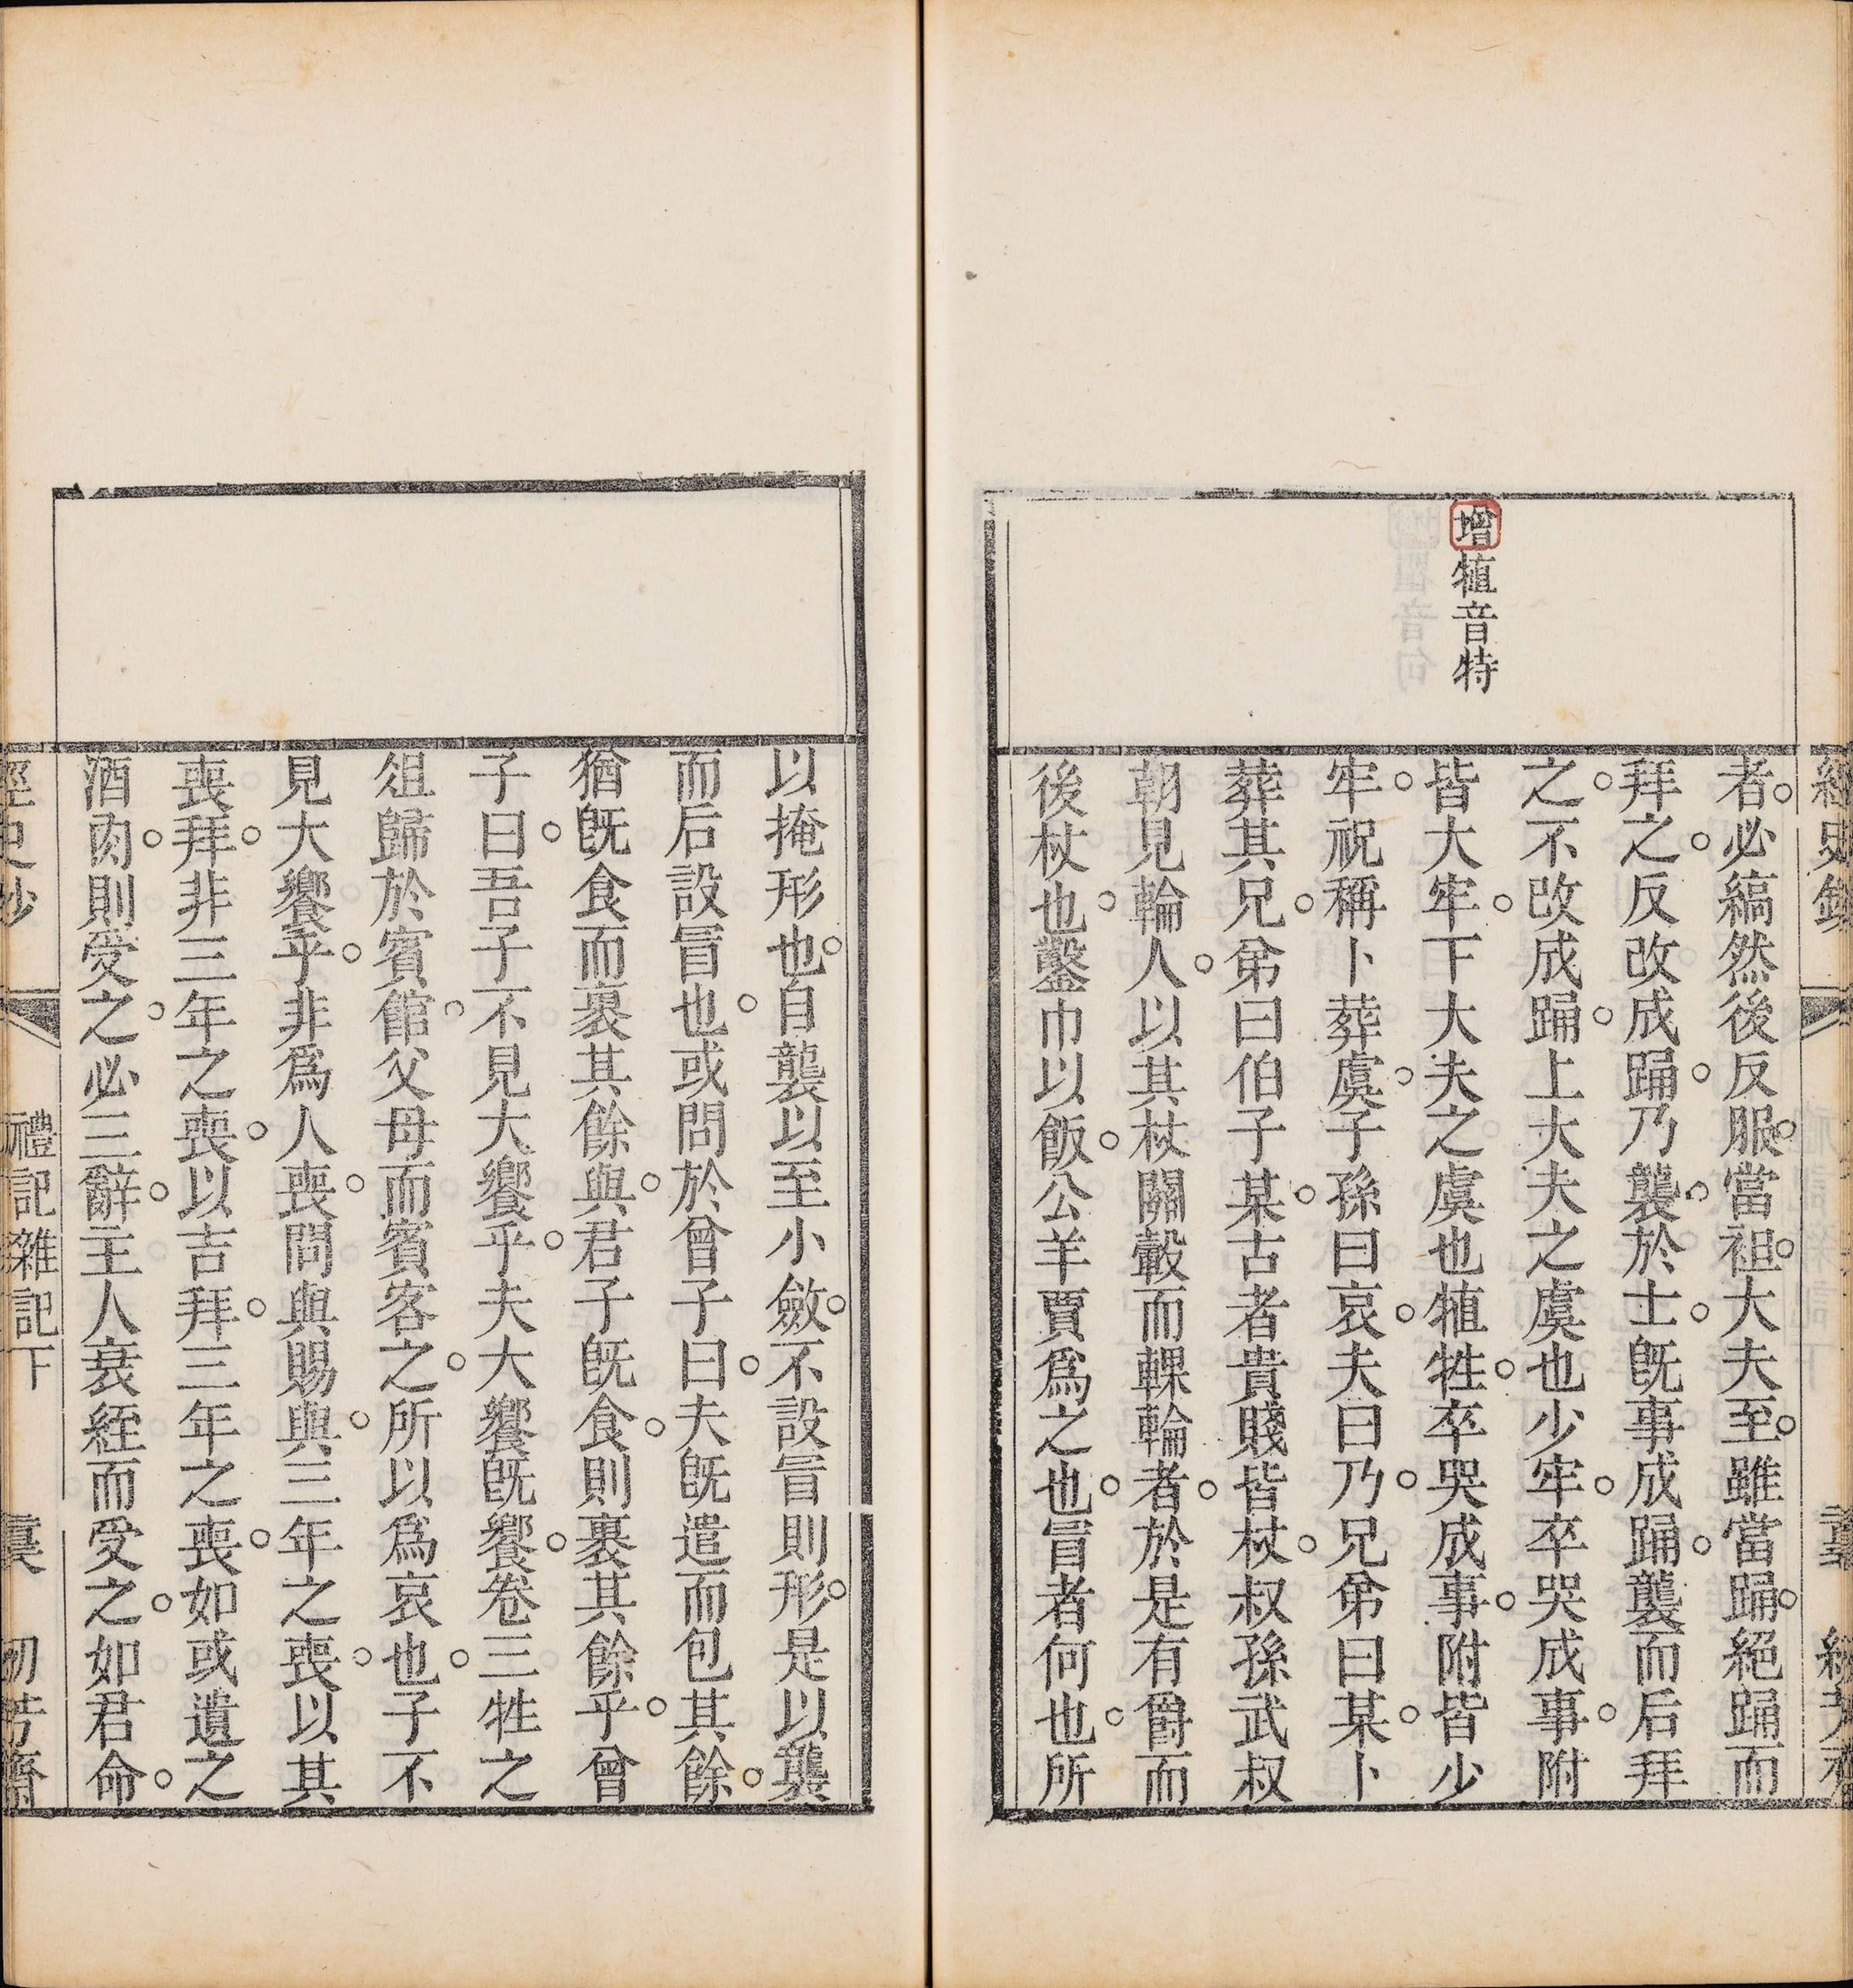 增犆音特
者必縞然後反服當袒大夫至雖當踊絕踊而
拜之反改成踊乃襲於士旣事成踊襲而后拜
之不改成踊上大夫之虞也少牢卒哭成事附
皆大牢下大夫之虞也犆牲卒哭成事附皆少
牢祝稱卜葬虞子孫曰哀夫曰乃兄弟曰某卜
葬其兄弟曰伯子某古者貴賤皆杖叔孫武叔
朝見輪人以其杖關轂而輠輪者於是有爵而
後杖也鑿巾以飯公羊賈爲之也冒者何也所
以掩形也自襲以至小斂不設冒則形是以襲
而后設冒也或問於曾子曰夫旣遣而包其餘
猶旣食而裹其餘與君子旣食則裹其餘乎曾
子曰吾子不見大饗乎夫大饗旣饗卷三牲之
俎歸於賓館父母而賓客之所以爲哀也子不
見大饗乎非爲人喪問與賜與三年之喪以其
喪拜非三年之喪以吉拜三年之喪如或遺之
酒肉則受之必三辭主人衰絰而受之如君命
禮記雜記下